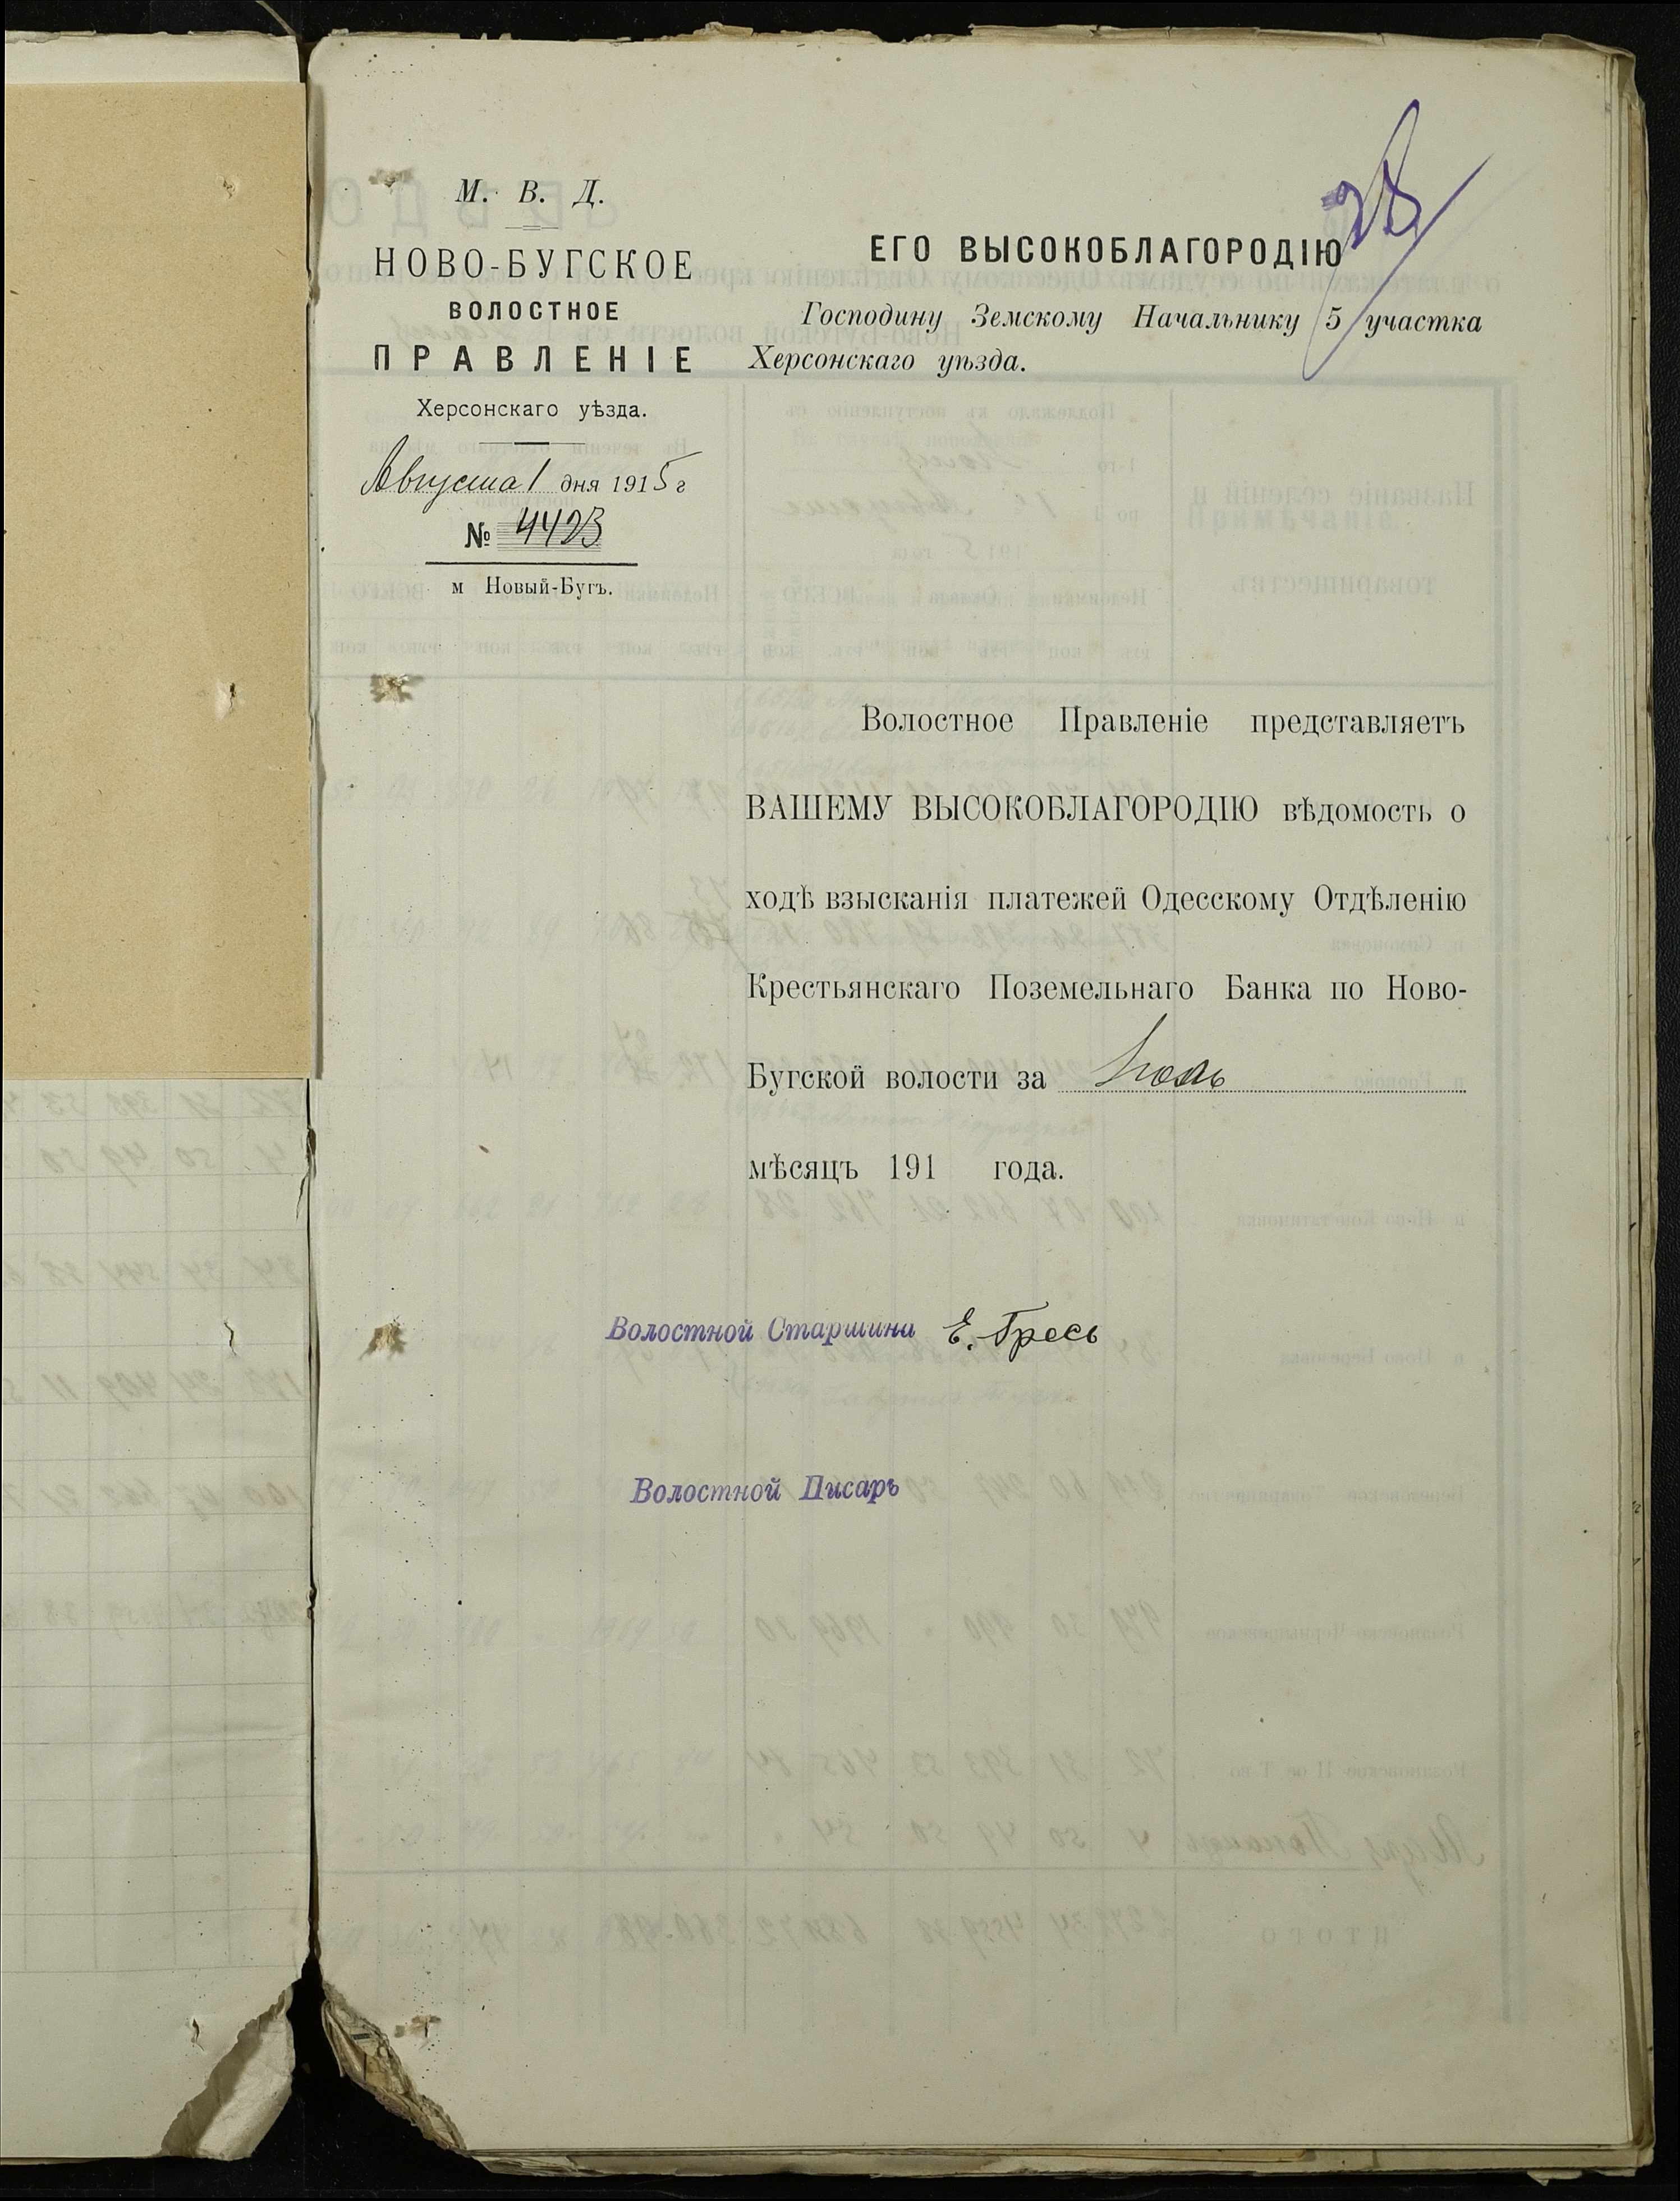 28
М. В. Д.
НОВО-БУГСКОЕ
ВОЛОСТНОЕ
ПРАВЛЕНІЕ
Херсонскаго уѣзда.
Августа 1 дня 1915 г
№ 4423
м Новый-Бугъ.
ЕГО ВЫСОКОБЛАГОРОДІЮ
Господину Земскому Начальнику 5 участка
Херсонскаго уѣзда.
Волостное Правленіе представляетъ
ВАШЕМУ ВЫСОКОБЛАГОРОДІЮ вѣдомость о
ходѣ взысканія платежей Одесскому Отдѣленію
Крестьянскаго Поземельнаго Банка по Ново-
Бугской волости за Іюль
мѣсяцъ 191 года.
Волостной Старшина Е. Гресь
Волостной Писарь